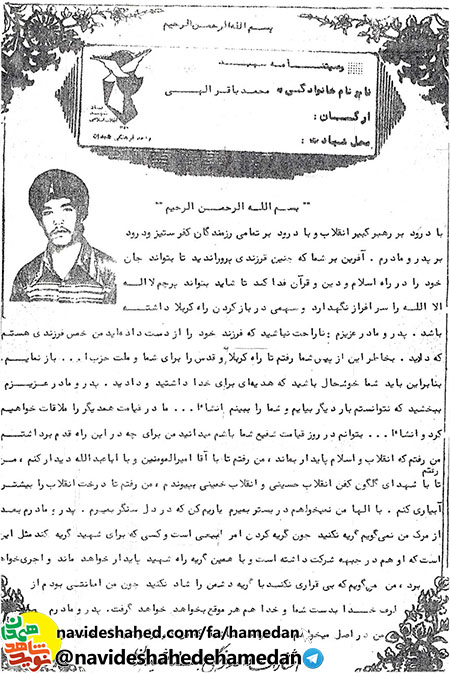 بسم الله الرحمن الرحیم
وصیتنامه شهید
نام و نام خانوادگی : محمد باقر الهی
ارگان :
محل شهادت :
بنیاد
شهید
انقلاب اسلامی
واحد فرهنگی همدان
" بسم الله الرحمن الرحیم "
با درود بر رهبر کبیر انقلاب و با درود بر تمامی رزمندگان کفر ستیز و درود
بر پدر و مادرم . آفرین بر شما که چنین فرزندی پروراندید تا بتواند جان
خود را در راه اسلام و دین و قرآن فدا کند تا شاید بتواند پرچم لا اله
الا الله را سرافراز نگهدارد و سهمی در باز کردن راه کربلا داشته
باشد . پدر و مادر عزیزم : ناراحت نباشید که فرزند خود را از دست داده‌اید من خمس فرزندی هستم
که دادید . بخاطر این از پیش شما رفتم تا راه کربلا و قدس را برای شما و ملت حزب‌ا... باز نمایم .
بنابراین باید شما خوشحال باشید که هدیه‌ای برای خدا داشتید و دادید . پدر و مادر عزیزم
ببخشید که نتوانستم بار دیگر بیایم و شما را ببینم انشاءا... ما در قیامت همدیگر را ملاقات خواهیم
کرد و انشاءا... بتوانم در روز قیامت شفیع شما باشم میدانید من برای چه در این راه قدم برداشتم
من رفتم که انقلاب و اسلام پایدار بماند ، من رفتم تا با آقا امیرالمومنین و ابا عبدالله دیدار کنم ، من رفتم
تا با شهدای گلگون کفن انقلاب حسینی و انقلاب خمینی بپیوندم ، من رفتم تا درخت انقلاب را بیشتر
آبیاری کنم . با الها من نمیخواهم در بستر بمیرم یاریم کن که در دل سنگر بمیرم . پدر و مادرم بعد
از مرگ من نمی‌گویم گریه نکنید چون گریه کردن امر طبیعی است و کسی که برای شهید گریه کند مثل این
است که او هم در جبهه شرکت داشته است و با همین گریه راه شهید پایدار خواهد ماند و اجری خواهد
برد ، من می‌گویم که بی قراری نکنید با گریه دشمن را شاد نکنید چون من امانتی بودم از
طرف خدا بدست شما و خدا هم هر موقع بخواهد خواهد گرفت . پدر و مادرم
من در اصل
navideshahed.com/fa/hamedan
@navideshahedehamedan
نوید شاهد
همدان